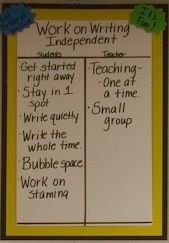 It's
Fun!
Work on Writing
Independent
Students
Teacher
Get started
right away
· Stay in 1
spot
· Write quietly
· Write the
whole time.
· Bubble space
· Work on
staming
Teaching-
· One at
a time.
· Small
group